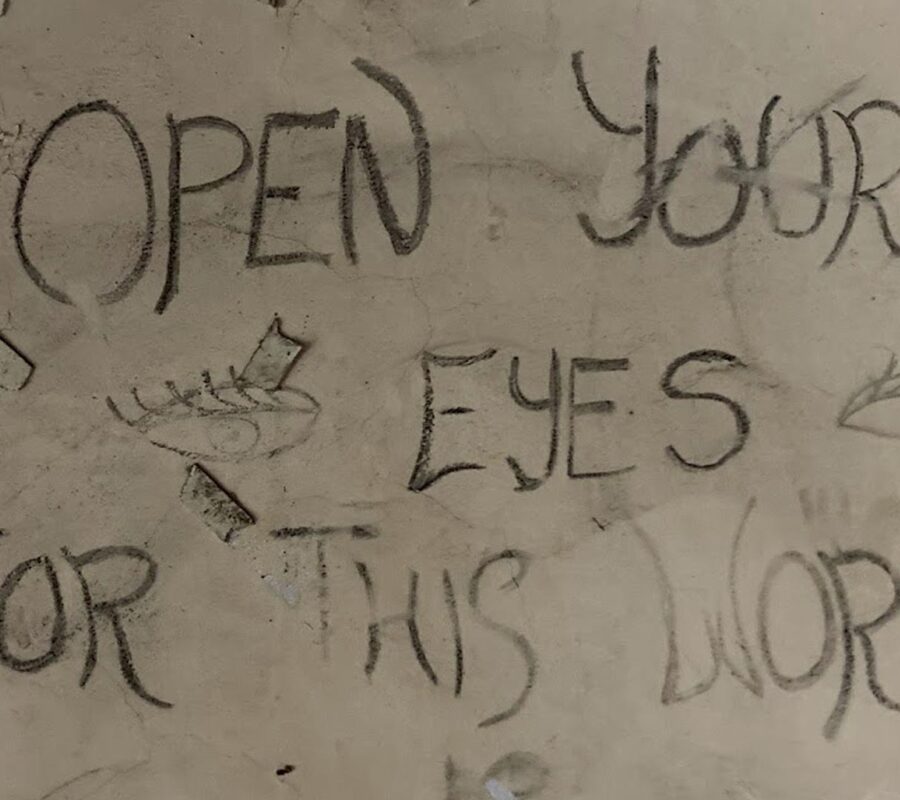 OPEN YOUR
EYES
OR THIS WOR